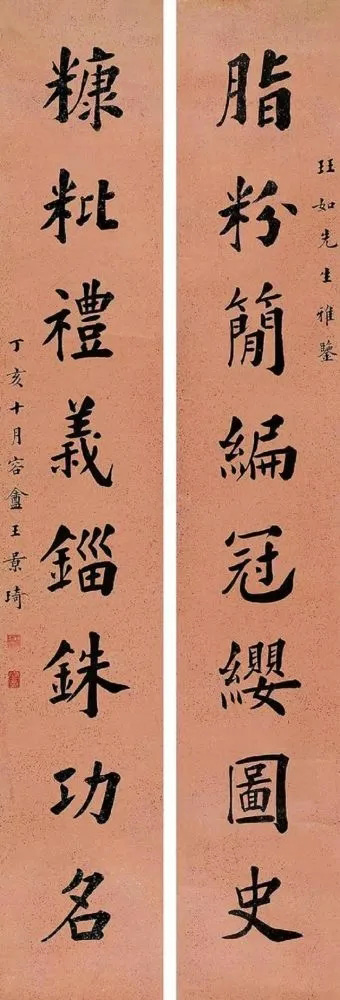 玨如先生雅鑒
脂粉簡編冠纓圖史
糠粃禮義錙銖功名
丁亥十月容盦王景琦